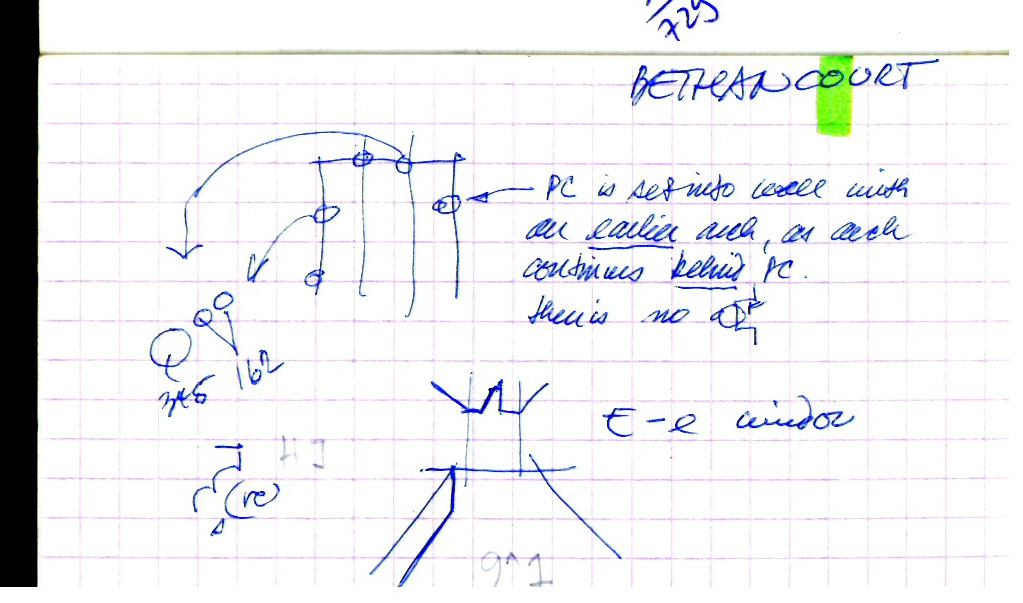 729
BETHANCOURT
PC is set into wall with
an earlier arch, as arch
continues behind PC.
there is no
162
E-e window
(re)